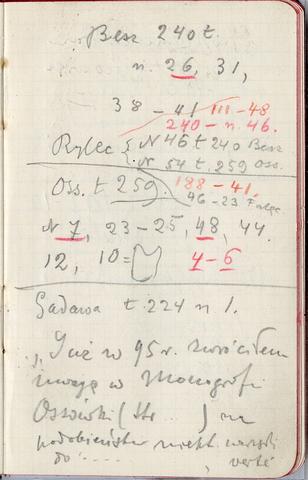 Besz 240 t.
n. 26, 31,
38 – 41 111 – 48
240 – n. 46.
Rylec { N 46 t 240 Besz
N. 54 t. 259 Oss.
Oss. t 259. 188 – 41.
46 – 23
N 7, 23 – 25, 48, 44.
12, 10 = 4 – 6
Sadawa t. 224 n 1.
„Już w 95 r. zwróciłem
uwagę w Monografii
Ossolińki (str. ... ) na
podobieństwo niekt. 
do ..... , verte